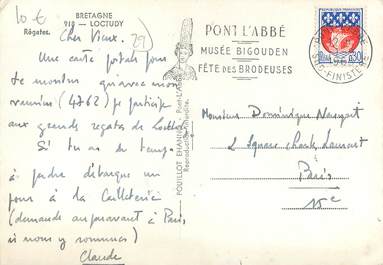 10 €
BRETAGNE
918 - LOCTUDY
Régates.
29
Cher Vieux.
Une carte postale pour
te montrer qu'avec mon
(4762) je participe
aux grandes régates de Loctudy
Si tu as du temps
à perdre débarque un
jour à la
(demande auparavant à Paris,
si nous y sommes)
Claude
PONT L'ABBÉ
MUSÉE BIGOUDEN
FÊTE DES BRODEUSES
REPUBLIQUE FRANÇAISE
0,30
SUD-FINISTERE
Reproduction interdite.
Monsieur Dominique
2 Square Charles Laurent
Paris
15e